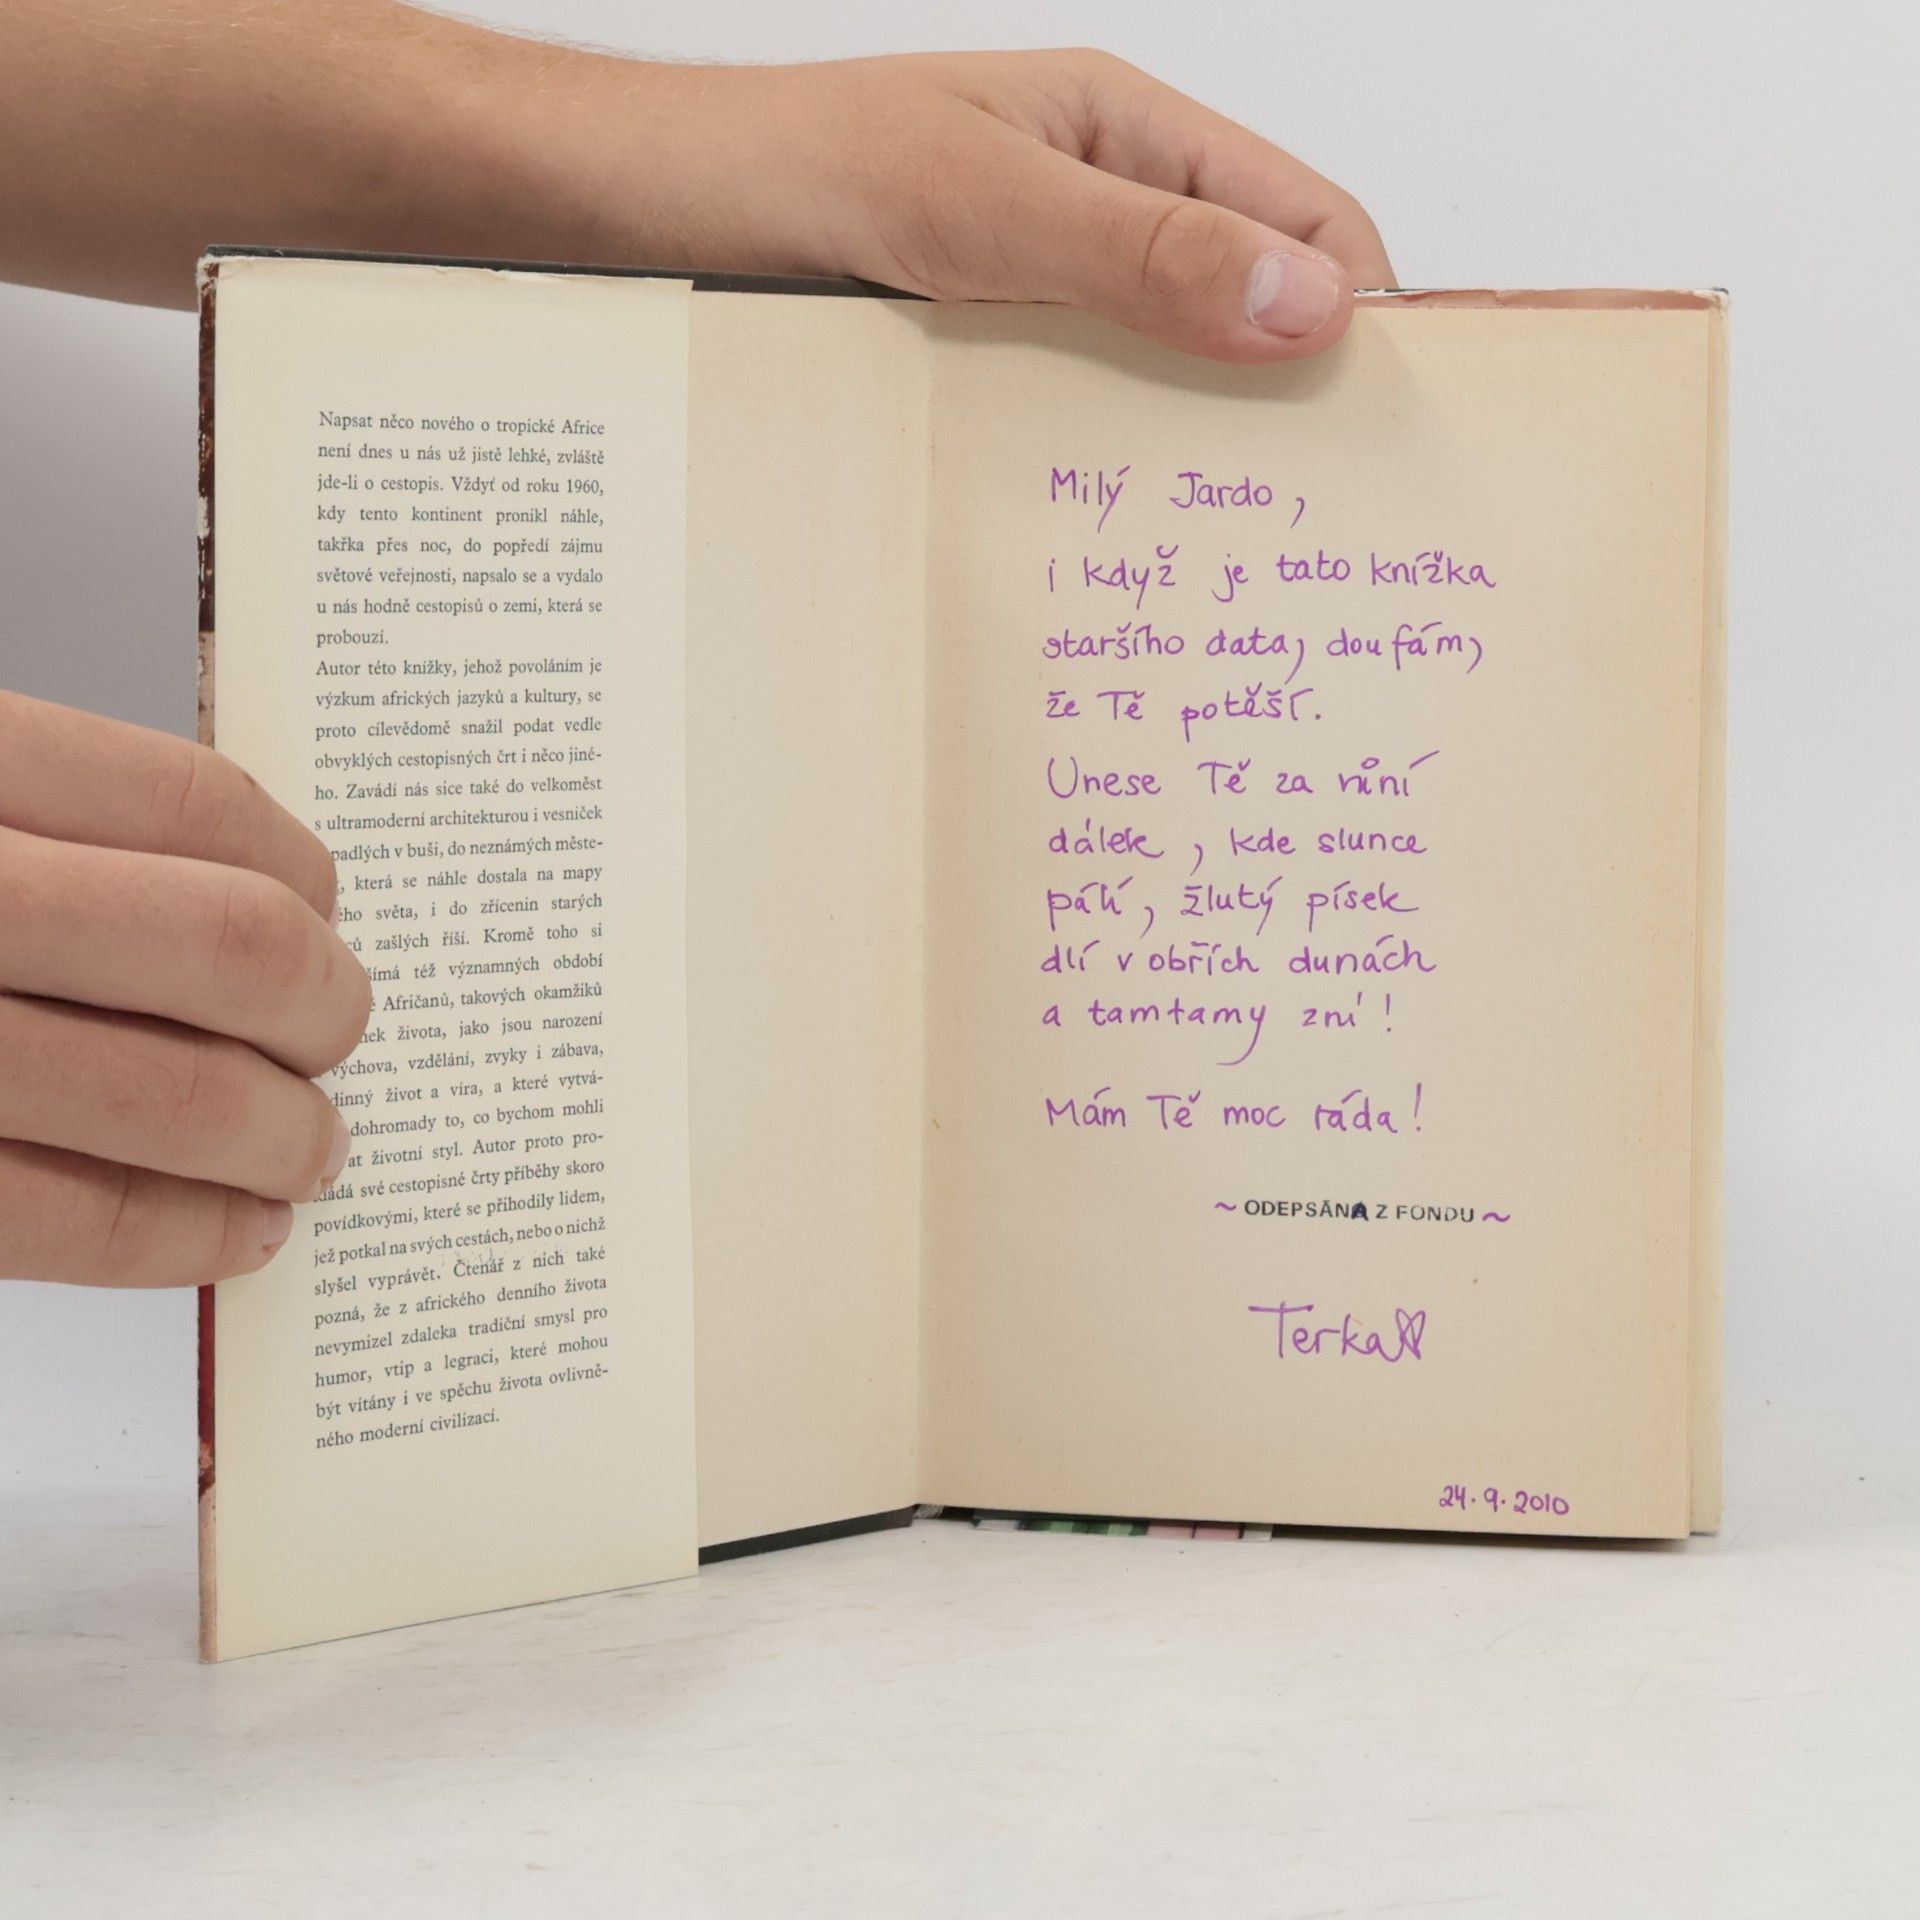 Napsat něco nového o tropické Africe
není dnes u nás už jistě lehké, zvláště
jde-li o cestopis. Vždyť od roku 1960,
kdy tento kontinent pronikl náhle,
takřka přes noc, do popředí zájmu
světové veřejnosti, napsalo se a vydalo
u nás hodně cestopisů o zemi, která se
probouzí.
Autor této knížky, jehož povoláním je
výzkum afrických jazyků a kultury, se
proto cílevědomě snažil podat vedle
obvyklých cestopisných črt i něco jiné-
ho. Zavádí nás sice také do velkoměst
s ultramoderní architekturou i vesniček
padlých v buši, do neznámých měste-
která se náhle dostala na mapy
světa, i do zřícenin starých
zašlých říší. Kromě toho si
též významných období
Afričanů, takových okamžiků
života, jako jsou narození
výchova, vzdělání, zvyky i zábava,
život a víra, a které vytvá-
dohromady to, co bychom mohli
životní styl. Autor proto pro-
své cestopisné črty příběhy skoro
povídkovými, které se přihodily lidem,
jež potkal na svých cestách, nebo o nichž
slyšel vyprávět. Čtenář z nich také
pozná, že z afrického denního života
nevymizel zdaleka tradiční smysl pro
humor, vtip a legraci, které mohou
být vítány i ve spěchu života ovlivně-
ného moderní civilizací.
Milý Jardo,
i když je tato knížka
staršího data, doufám,
že Tě potěší.
Unese Tě za
dálek, kde slunce
pálí, žlutý písek
dlí v obřích dunách
a tamtamy zní!
Mám Tě moc ráda!
~ ODEPSÁNA Z FONDU ~
Terka
24.9.2010